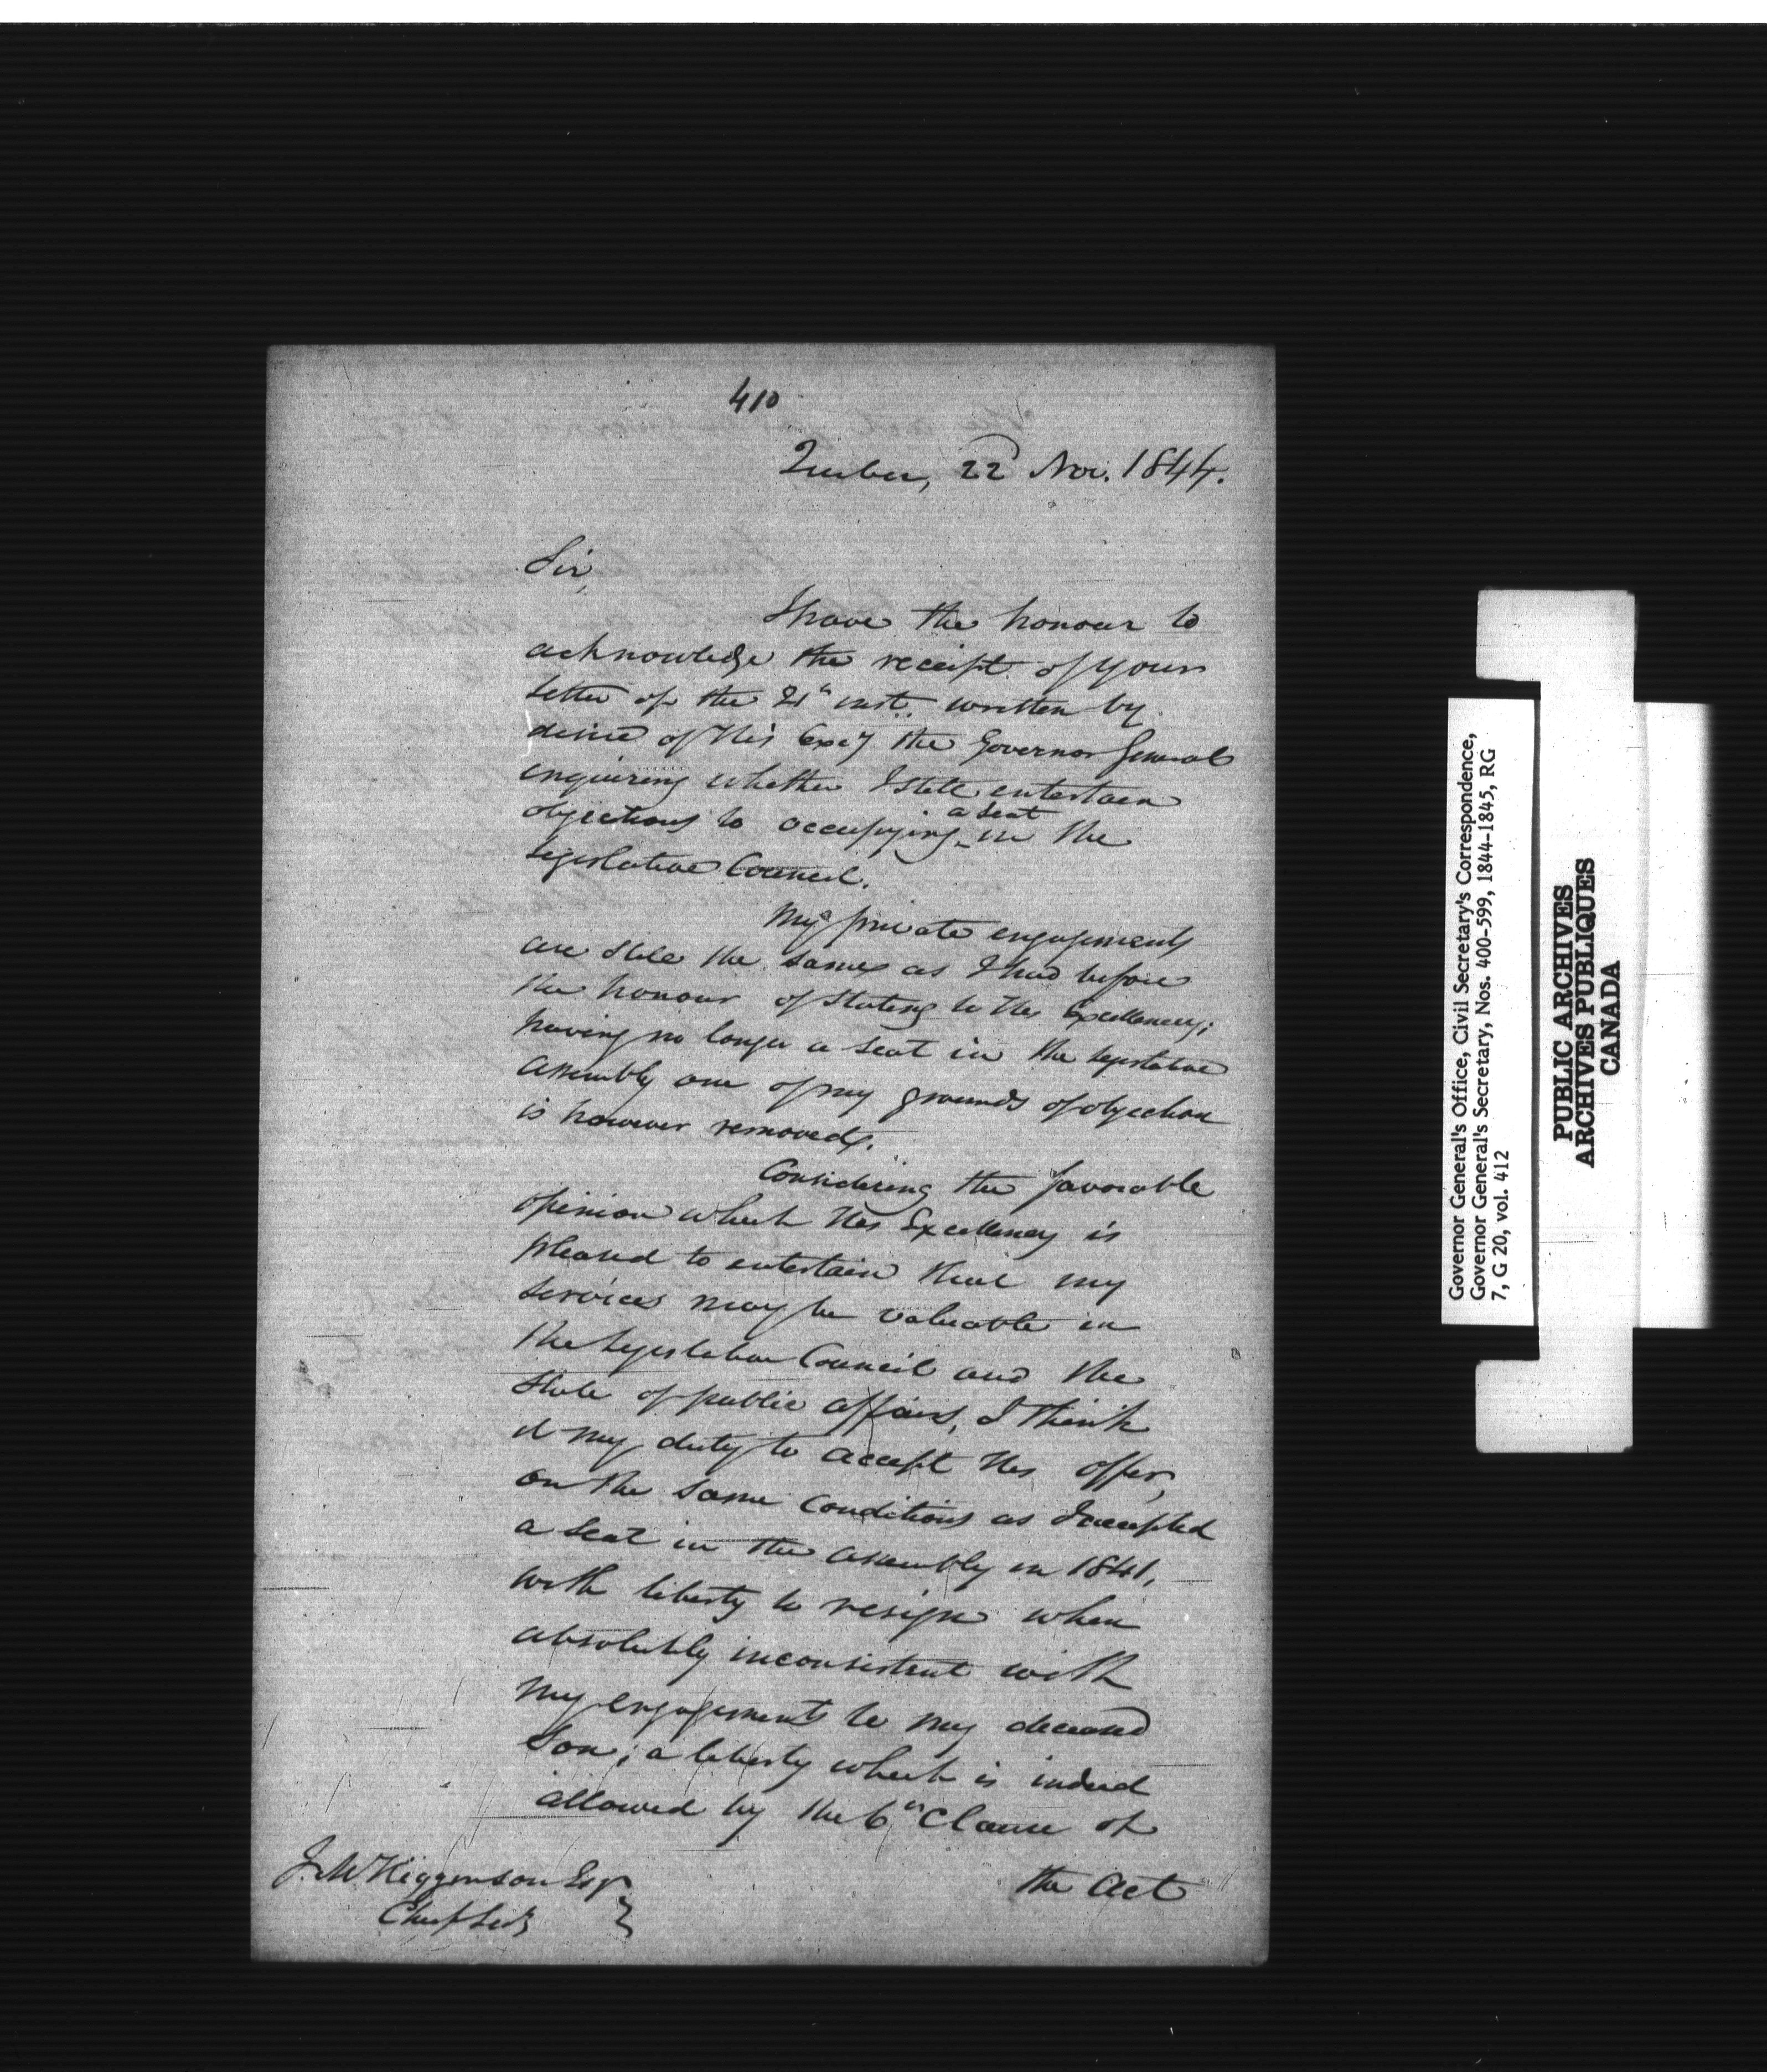 410
Quebec, 22d Nov. 1844.
Sir,
I have the honour to
acknowledge the receipt of your
letter of the inst. written by
desire of His Excy the Governor General
enquiring whether I still entertain
objections to occupying a seat in the
Legislative Council.
My private engagements
are still the same as I had before
the honour of stating to His Excellency;
having no longer a seat in the Legislative
Assembly one of my grounds of objection
is however removed.
Considering the favorable
opinion which His Excellency is
pleased to entertain that my
services may be valuable in
the Legislative Council and the
State of public affairs, I think
it my duty to accept His offer,
on the same conditions as I accepted
a seat in the Assembly in 1841,
with liberty to resign when
absolutely inconsistent with
my engagements to my deceased
Son; a liberty which is indeed
allowed by the 6th Clause of
the Act
J. M. Higginson Esqr
Chief Secy
Governor General's Office, Civil Secretary's Correspondence,
Governor General's Secretary, Nos. 400-599, 1844-1845, RG
7, G 20, vol. 412
PUBLIC ARCHIVES
ARCHIVES PUBLIQUES
CANADA